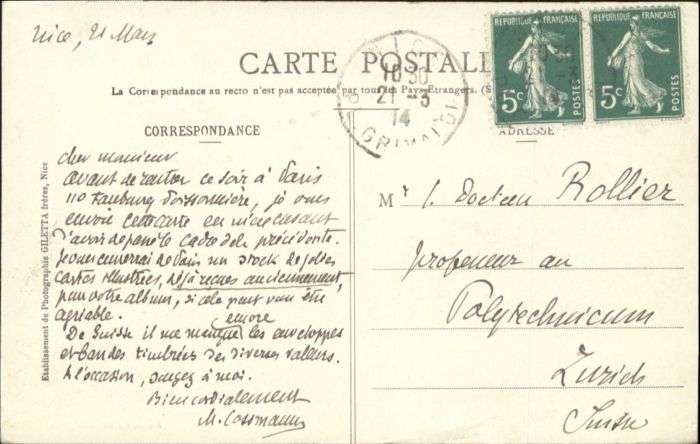 Nice, 21 Mars
CARTE POSTALE
La Correspondance au recto n'est pas acceptée par tous les Pays Etrangers. (S
CORRESPONDANCE
ADRESSE
REPUBLIQUE FRANÇAISE
5c POSTES
REPUBLIQUE FRANÇAISE
5c POSTES
NICE
10 30
21 -3
14
GRIMALDI
Cher Monsieur
Avant de rentrer ce soir à Paris
110 Faubourg Poissonnière, je vous
envoie cette carte en m'excusant
d'avoir dépareillé la
précédente.
Je vous enverrai de Paris un stock de jolies
cartes illustrées, déjà reçues anciennement,
pour votre album, si cela peut vous être
agréable.
De Suisse il me manque encore les enveloppes
et bandes timbrées des diverses valeurs.
A l'occasion, songez à moi.
Bien cordialement
M. Cossmann
Mr l. Docteur Rollier
professeur au
Polytechnicum
Zurich
Suisse
Etablissement de Photographie GILETTA frères, Nice